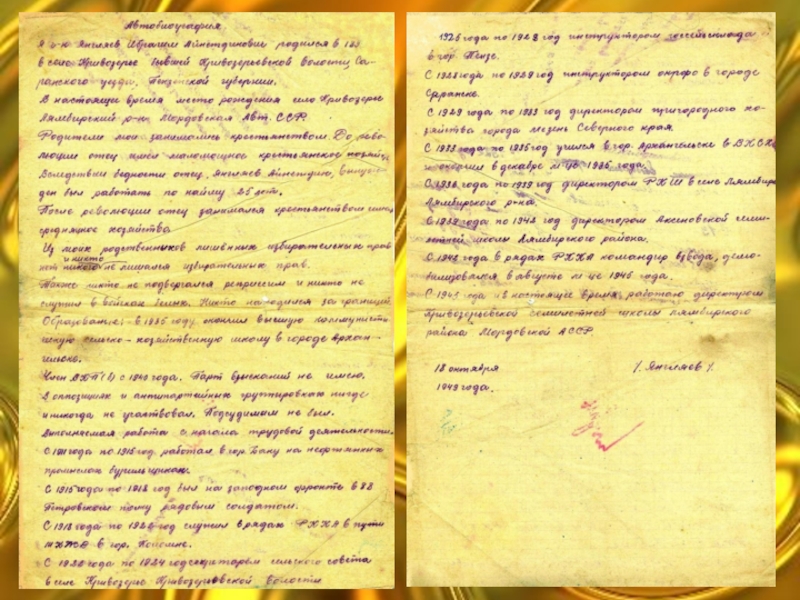 Автобиография.
Я г-н Янгляев Ибрагим Айнетдинович родился в
в село Кривозерье бывшей Кривозерьевской волости, Са-
ранского уезда, Пензенской губернии.
В настоящее время место рождения село Кривозерье
Лямбирский р-на Мордовская Авт. ССР.
Родители мои занимались крестьянством. До рево-
люции отец имел маломощное крестьянское хозяйс
Вследствии бедности отец, Янгляев Айнетдин, вынуж-
ден был работать по найму 25 лет.
После революции отец занимался крестьянством имел
среднящкое хозяйства.
Из моих родственников лишённых избирательных прав
и никто
нет не лишался избирательных прав.
Также никто не подвергался репрессии и никто не
служил в войсках белых. Никто находился за границей.
Образование: в 1935 году окончил высшую коммунисти
ческую сельско-хозяйственную школу в городе Архан-
гельске.
Член ВКП(б) с 1940 года. Парт взысканий не имею.
В оппозициях и антипартийных группировках нигде
и никогда не участвовал. Подсудимым не был.
Выполняемая работа с начала трудовой деятельности.
С 1911 года по 1915 год работал в гор. Баку на нефтянных
промыслах бурильщиком.
С 1915 года по 1918 год был на западном фронте в 88
Петровском полку рядовым солдатом.
С 1918 года по 1920 год служил в рядах РККА в пути
в гор. Коломне.
С 1920 года по 1924 год секретарём сельского совета
в селе Кривозерье Кривозерьевской волости
1926 года по 1928 год инструктором
в гор. Пензе.
С 1928 года по 1929 год инструктором в городе
Саранске.
С 1929 года по 1933 год директором пригородного хо-
зяйства города мезень Северного края.
С 1933 года по 1935 год учился в гор. Архангельске в ВКСХ
и окончил в декабре м-це 1935 года.
С 1936 года по 1939 год директором РКШ в селе Лямбирь
Лямбирского р-на.
С 1939 года по 1942 год директором Аксеновской семи-
летней школы Лямбирского района.
С 1942 года в рядах РККА командир взвода, демо-
билизовался в августе м-це 1945 года.
С 1945 года в настоящее время работаю директором
Кривозерьевской семилетней школы Лямбирского
района Мордовской АССР.
18 октября
1949 года.
/. Янгляев /.